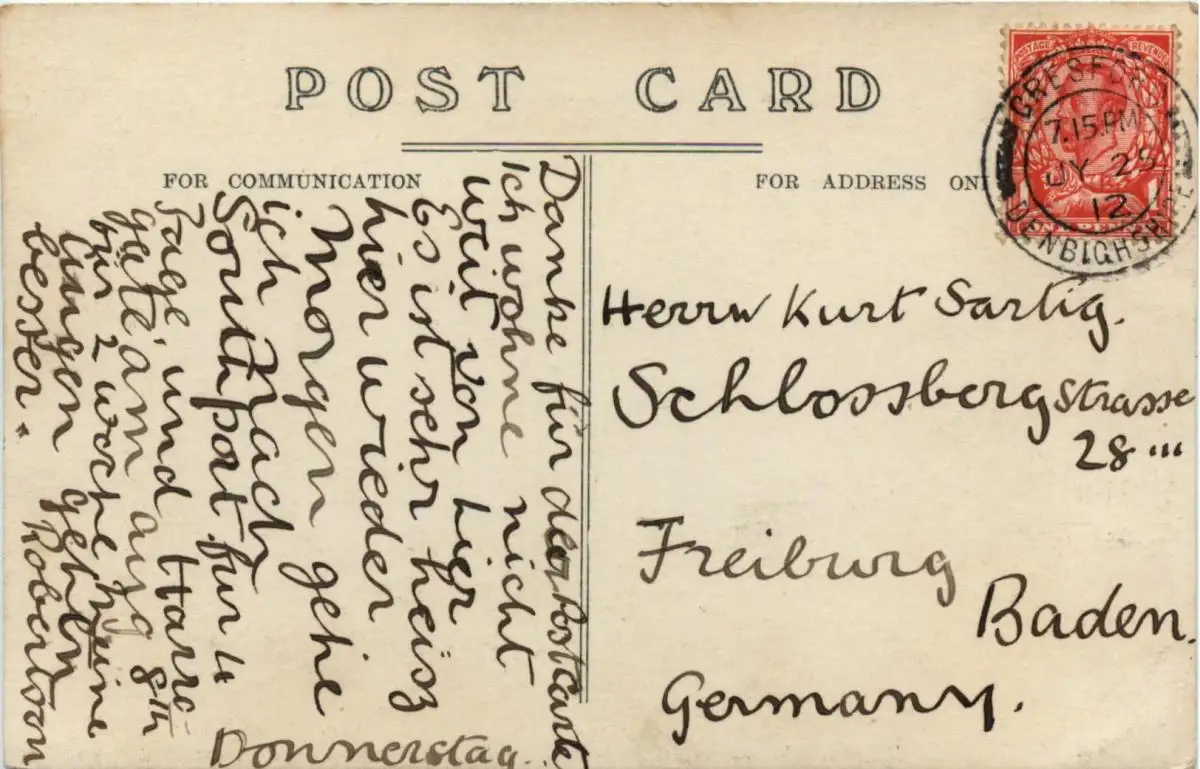 POST CARD
FOR COMMUNICATION
FOR ADDRESS ONL
POSTAGE REVENUE
GRESFORD
7.15 PM
JY 25
12
DENBIGHSHIRE
Donnerstag.
Danke für der Postcarte
Ich wohne nicht
weit von hier
Es ist sehr heisz
hier wieder
Morgen gehe
ich nach
Southport fur 4
Tage und Harro
gate am aug 8th
für 2 woche
lungen gehen
besser.
Robertson
Herrn Kurt Sartig.
Schlossberg Strasse
28
Freiburg
Baden.
Germany.